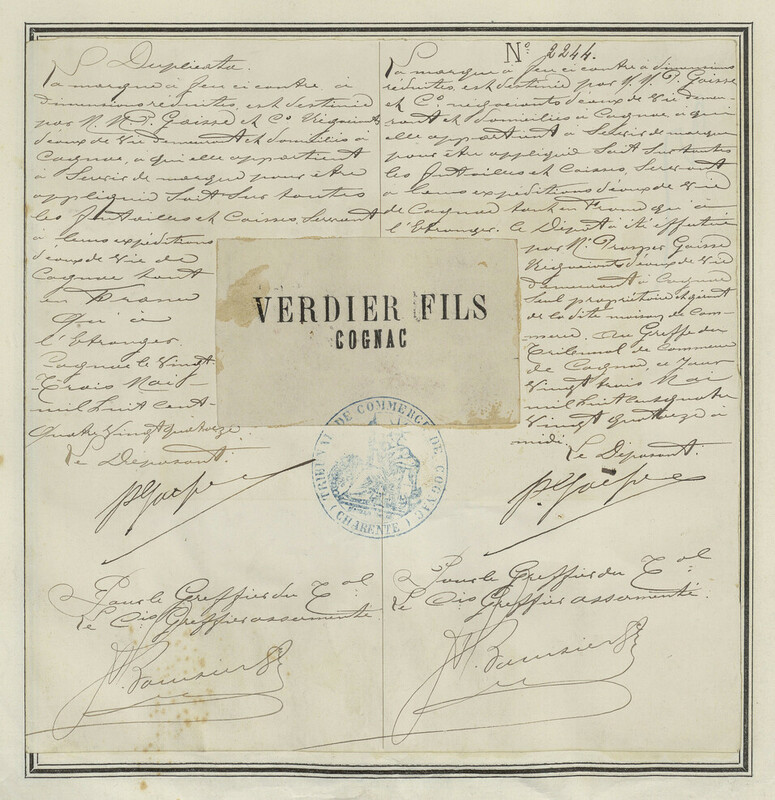 Duplicata.
La marque à feu ci contre à
dimensions reduites, est destinée
par M. M. P. Gaisse et Co Négociants
d'eaux de Vie demeurant et domiciliés à
Cognac, à qui elle appartient
à Servir de marque pour être
appliquée Soit Sur toutes
les futailles et Caisses, Servant
à leurs expéditions
d'eaux de Vie de
Cognac tant
en France
qu'à
l'Etranger.
Cognac le Vingt
Trois Mai
mil huit cent
quatre Vingt quatorze
Le Déposant.
Pour le Greffier du Tal
Le Cis Greffier assermenté
No 2244.
La marque à feu ci contre à dimensions
reduites, est destinée par M. M. P. Gaisse
et Co négociants d'eaux de Vie demeu-
rant et domiciliés à Cognac à qui
elle appartient à Servir de marque
pour être appliquée Soit Sur toutes
les futailles et Caisses, Servant
à leurs expéditions d'eaux de Vie
de Cognac tant en France qu'à
l'Etranger. Le Dépôt a été effectué
par Mr. Prosper Gaisse
Négociant d'eaux de Vie
demeurant à Cognac
Seul propriétaire et gérant
de la dite maison de Com-
merce. Au Greffe du
Tribunal de Commerce
de Cognac, ce Jour
Vingt trois Mai
mil huit cent quatre
Vingt quatorze à
midi.
Le Déposant.
Pour le Greffier du Tal
Le Cis Greffier assermenté.
VERDIER FILS
COGNAC
TRIBUNAL DE COMMERCE DE COGNAC
(CHARENTE)